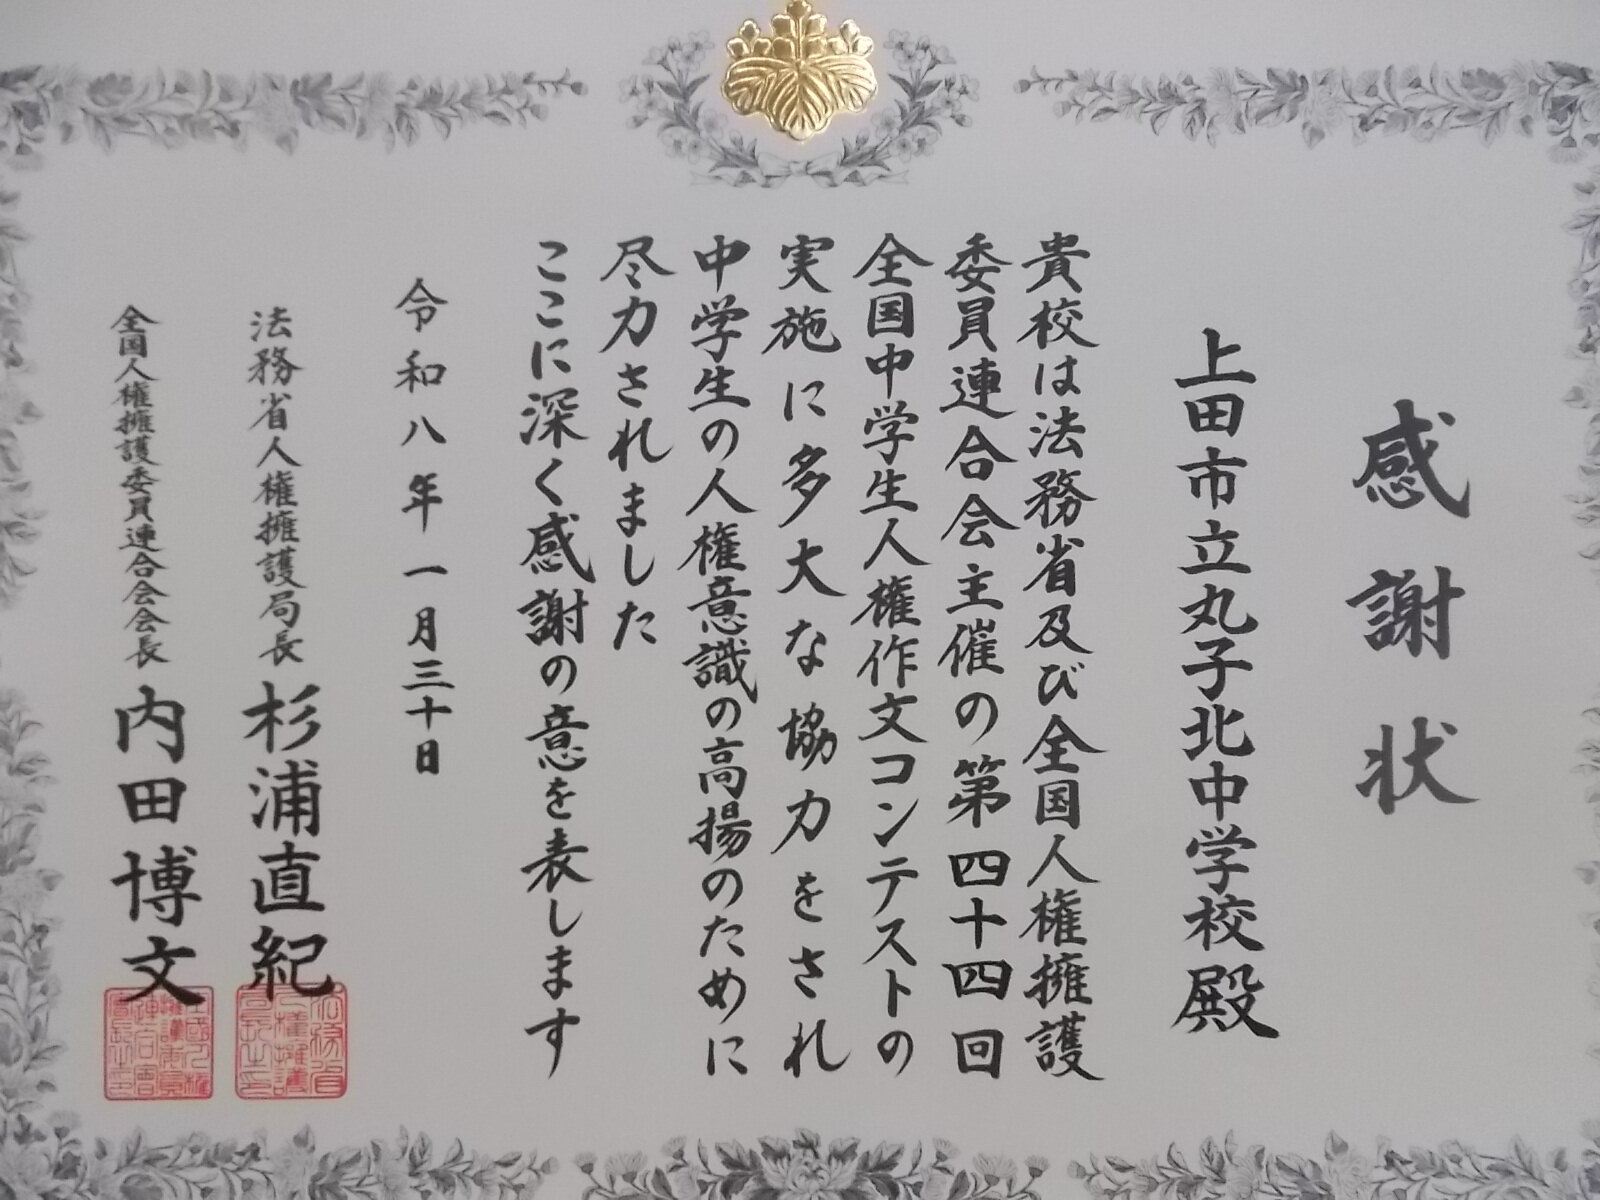 感謝状
上田市立丸子北中学校殿
貴校は法務省及び全国人権擁護
委員連合会主催の第四十四回
全国中学生人権作文コンテストの
実施に多大な協力をされ
中学生の人権意識の高揚のために
尽力されました
ここに深く感謝の意を表します
令和八年一月三十日
法務省人権擁護局長 杉浦直紀
全国人権擁護委員連合会会長 内田博文